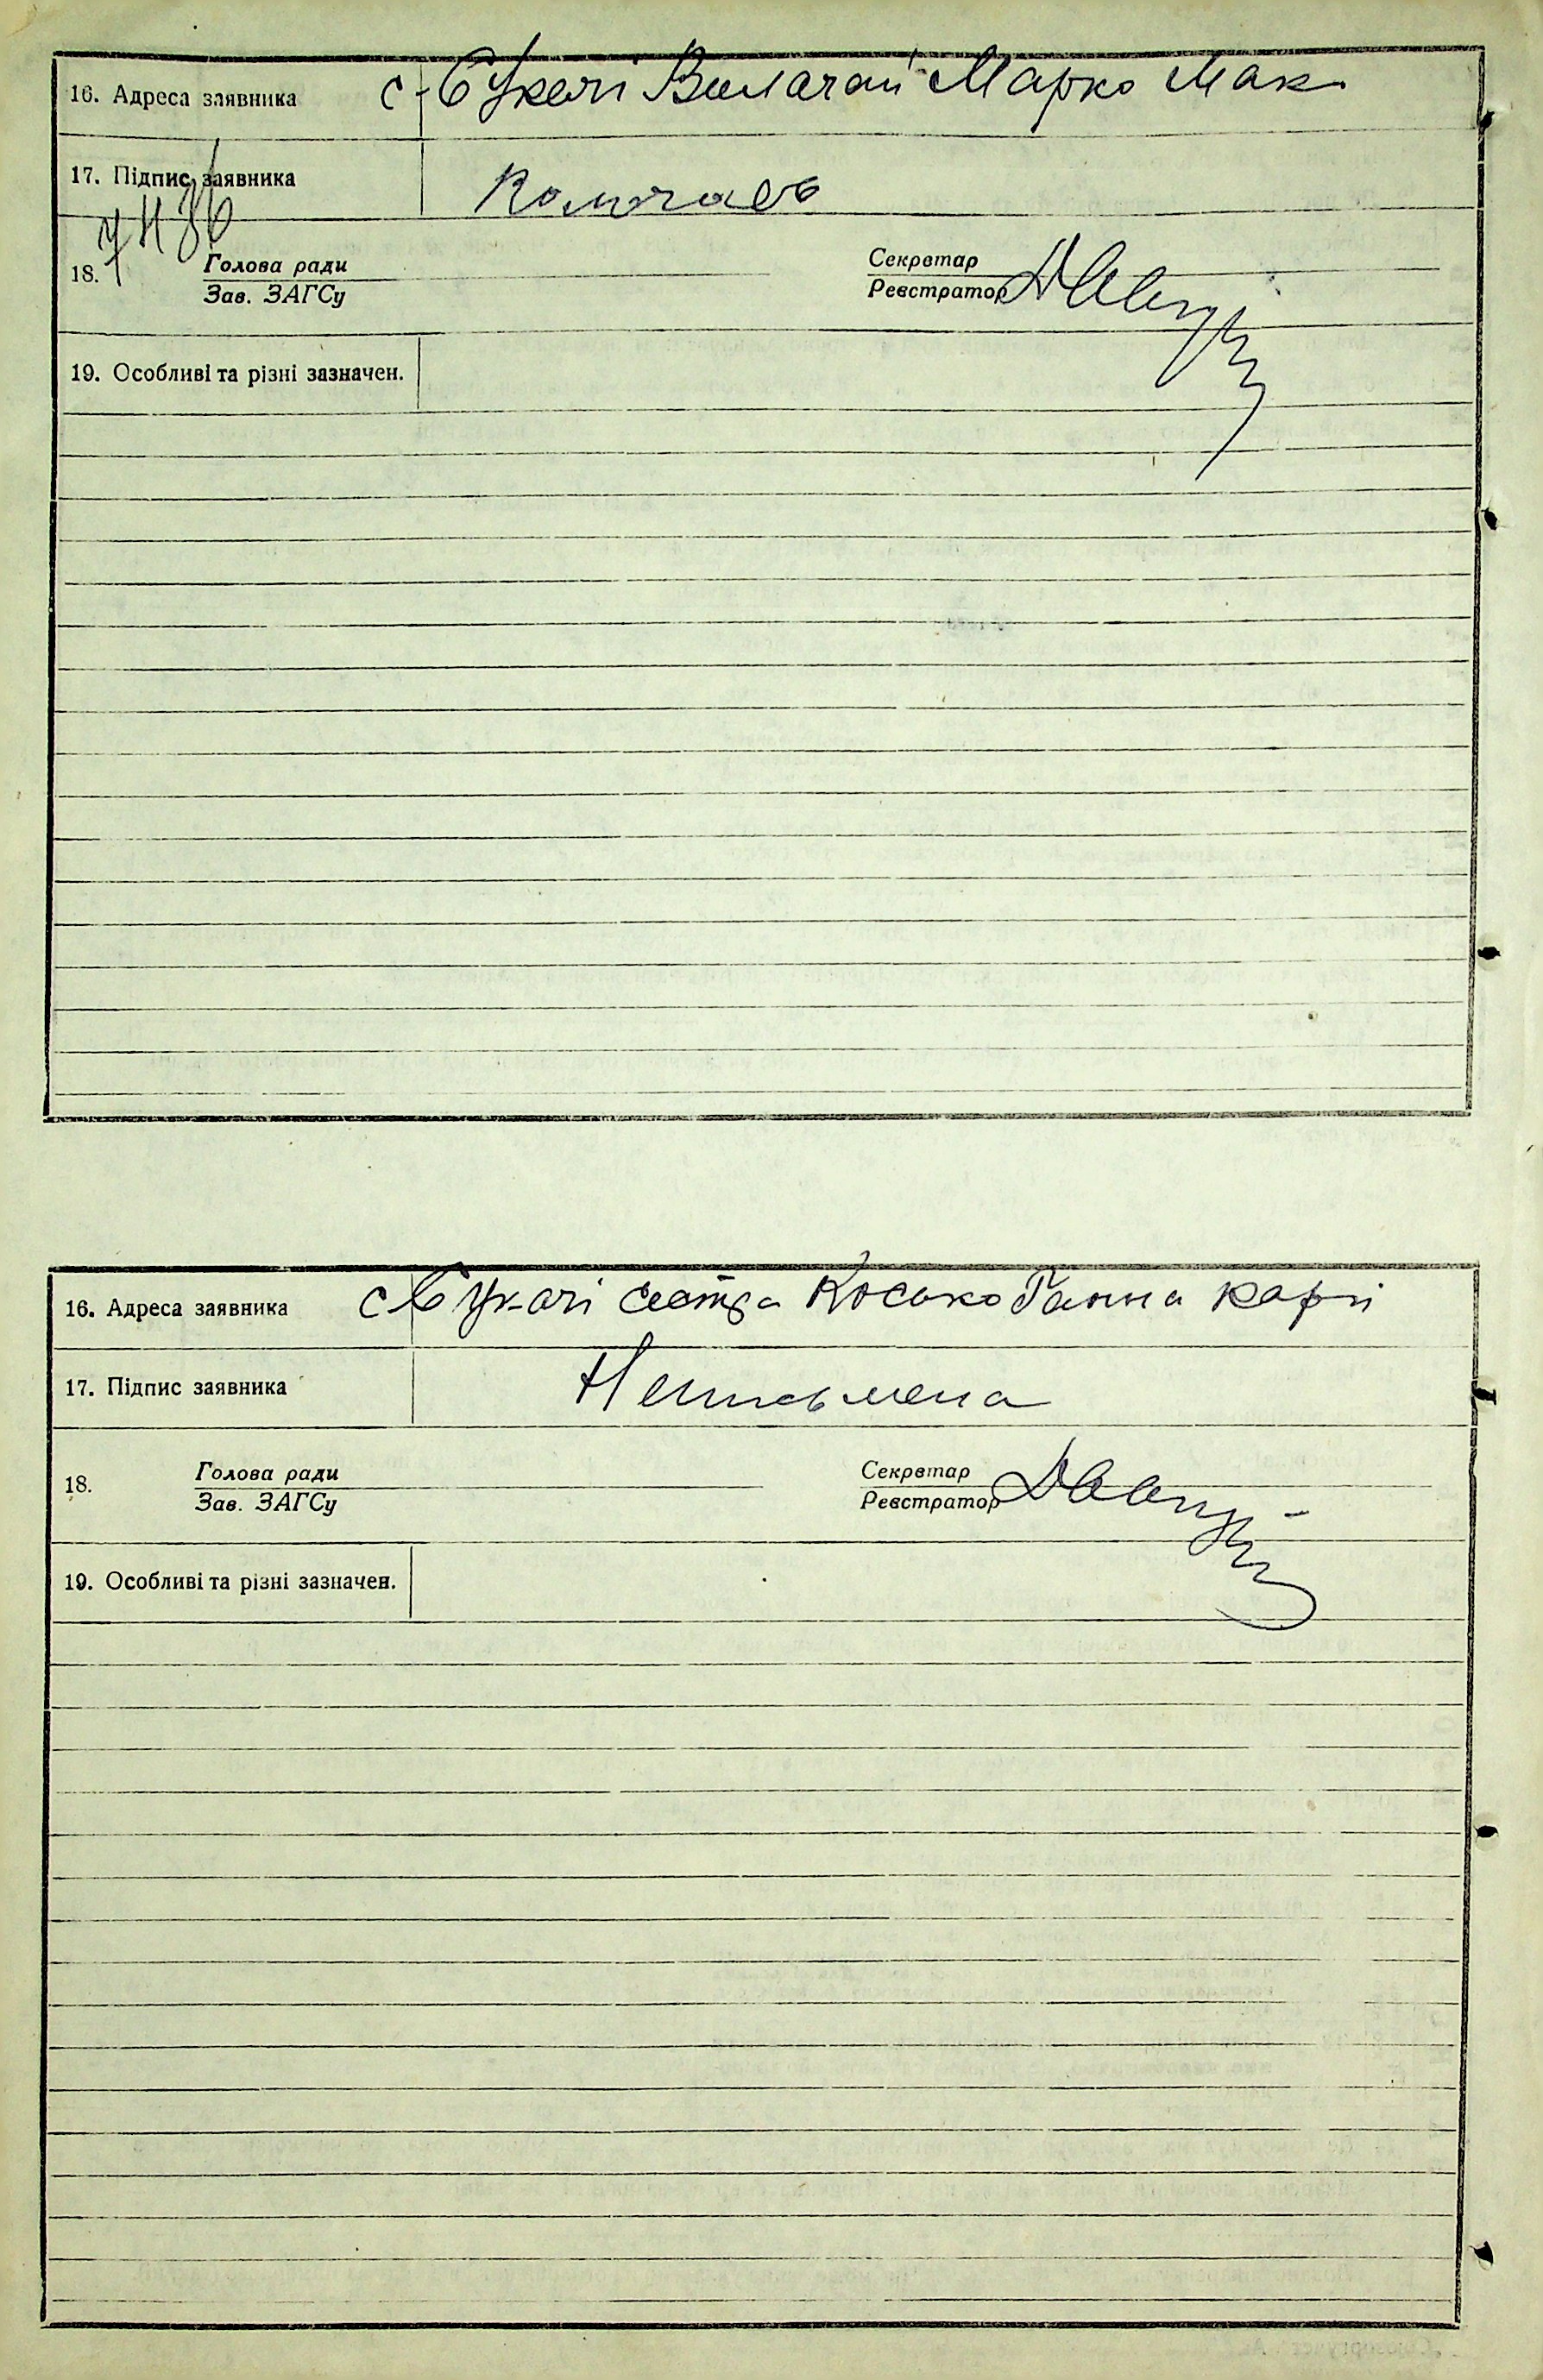 16. Адреса заявника с. Букачі Марко Мак
17. Підпис заявника
18. Голова ради Секретар
Зав. ЗАГСу Реєстратор
19. Особливі та різні зазначен.
16. Адреса заявника с Букачі сестра Косько Ганна
17. Підпис заявника Неписьмена
18. Голова ради Секретар
Зав. ЗАГСу Реєстратор
19. Особливі та різні зазначен.